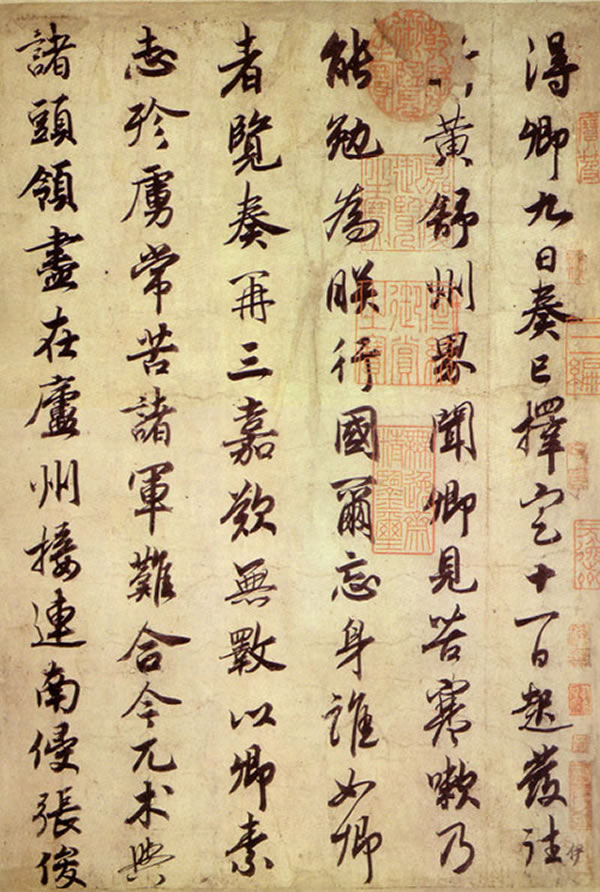 得卿九日奏已擇定十一日起發往
黃舒州界聞卿見苦寒嗽乃
能勉為朕行國爾忘身誰如卿
者覽奏再三嘉歎無斁以卿素
志殄虜常苦諸軍難合今兀术與
諸頭領盡在廬州接連南侵張俊